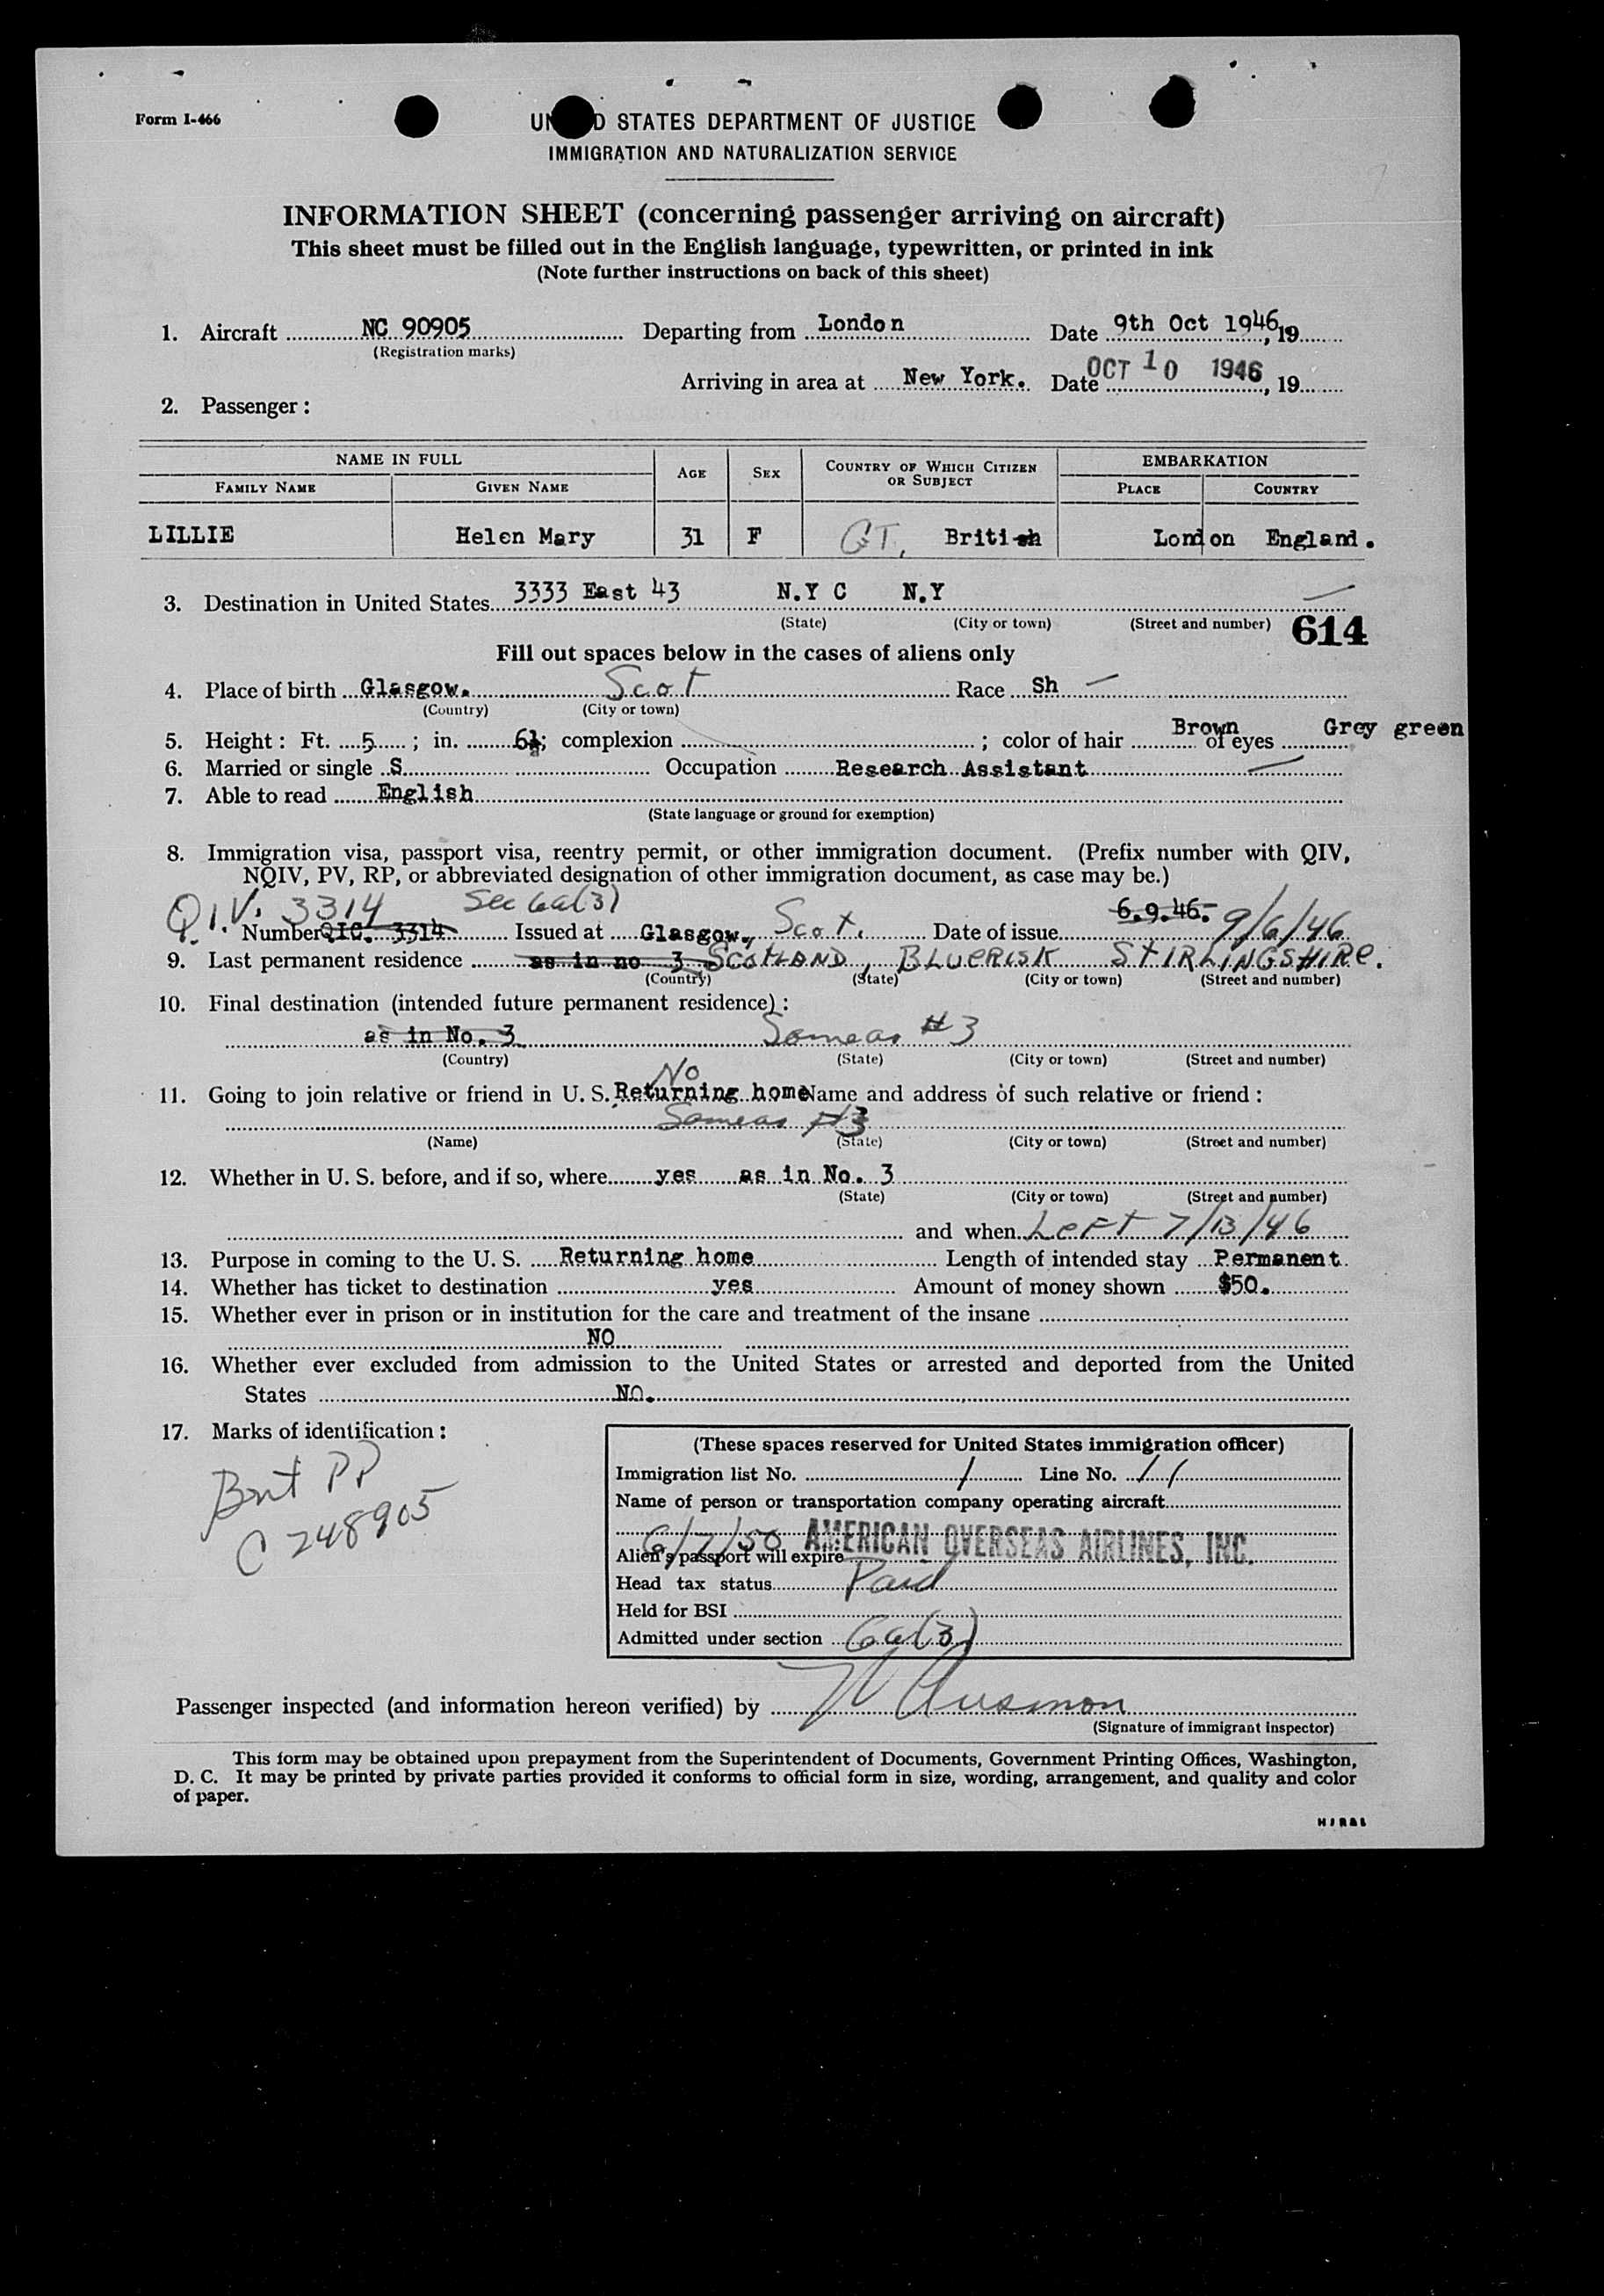 Form I-466
UNITED STATES DEPARTMENT OF JUSTICE
IMMIGRATION AND NATURALIZATION SERVICE
INFORMATION SHEET (concerning passenger arriving on aircraft)
This sheet must be filled out in the English language, typewritten, or printed in ink
(Note further instructions on back of this sheet)
1. Aircraft NC 90905 Departing from London Date 9th Oct 1946, 19
(Registration marks)
Arriving in area at New York. Date OCT 10 1946, 19
2. Passenger:
NAME IN FULL AGE SEX COUNTRY OF WHICH CITIZEN OR SUBJECT EMBARKATION
FAMILY NAME GIVEN NAME PLACE COUNTRY
LILLIE Helen Mary 31 F GT. British London England.
3. Destination in United States 3333 East 43 N.Y C N.Y
(State) (City or town) (Street and number) 614
Fill out spaces below in the cases of aliens only
4. Place of birth Glasgow. Scot Race Sh
(Country) (City or town)
5. Height: Ft. 5; in. 6½; complexion ; color of hair Brown of eyes Grey green
6. Married or single S Occupation Research Assistant
7. Able to read English
(State language or ground for exemption)
8. Immigration visa, passport visa, reentry permit, or other immigration document. (Prefix number with QIV,
NQIV, PV, RP, or abbreviated designation of other immigration document, as case may be.)
Q.I.V. 3314 Sec 6a(3) 6.9.46.
Number QIC. 3314 Issued at Glasgow., Scot. Date of issue 9/6/46
9. Last permanent residence as in no 3 SCOTLAND, BLUERISK STIRLINGSHIRE.
(Country) (State) (City or town) (Street and number)
10. Final destination (intended future permanent residence):
as in No. 3 Same as #3
(Country) (State) (City or town) (Street and number)
No
11. Going to join relative or friend in U. S. Returning home Name and address of such relative or friend:
Same as #3
(Name) (State) (City or town) (Street and number)
12. Whether in U. S. before, and if so, where yes as in No. 3
(State) (City or town) (Street and number)
and when Left 7/13/46
13. Purpose in coming to the U. S. Returning home Length of intended stay Permanent
14. Whether has ticket to destination yes Amount of money shown $50.
15. Whether ever in prison or in institution for the care and treatment of the insane
NO
16. Whether ever excluded from admission to the United States or arrested and deported from the United
States NO.
17. Marks of identification:
Brit PP
C 248905
(These spaces reserved for United States immigration officer)
Immigration list No. 1 Line No. 11
Name of person or transportation company operating aircraft
6/7/50 AMERICAN OVERSEAS AIRLINES, INC.
Alien's passport will expire
Head tax status Paid
Held for BSI
Admitted under section 6a(3)
Passenger inspected (and information hereon verified) by
(Signature of immigrant inspector)
This form may be obtained upon prepayment from the Superintendent of Documents, Government Printing Offices, Washington,
D. C. It may be printed by private parties provided it conforms to official form in size, wording, arrangement, and quality and color
of paper.